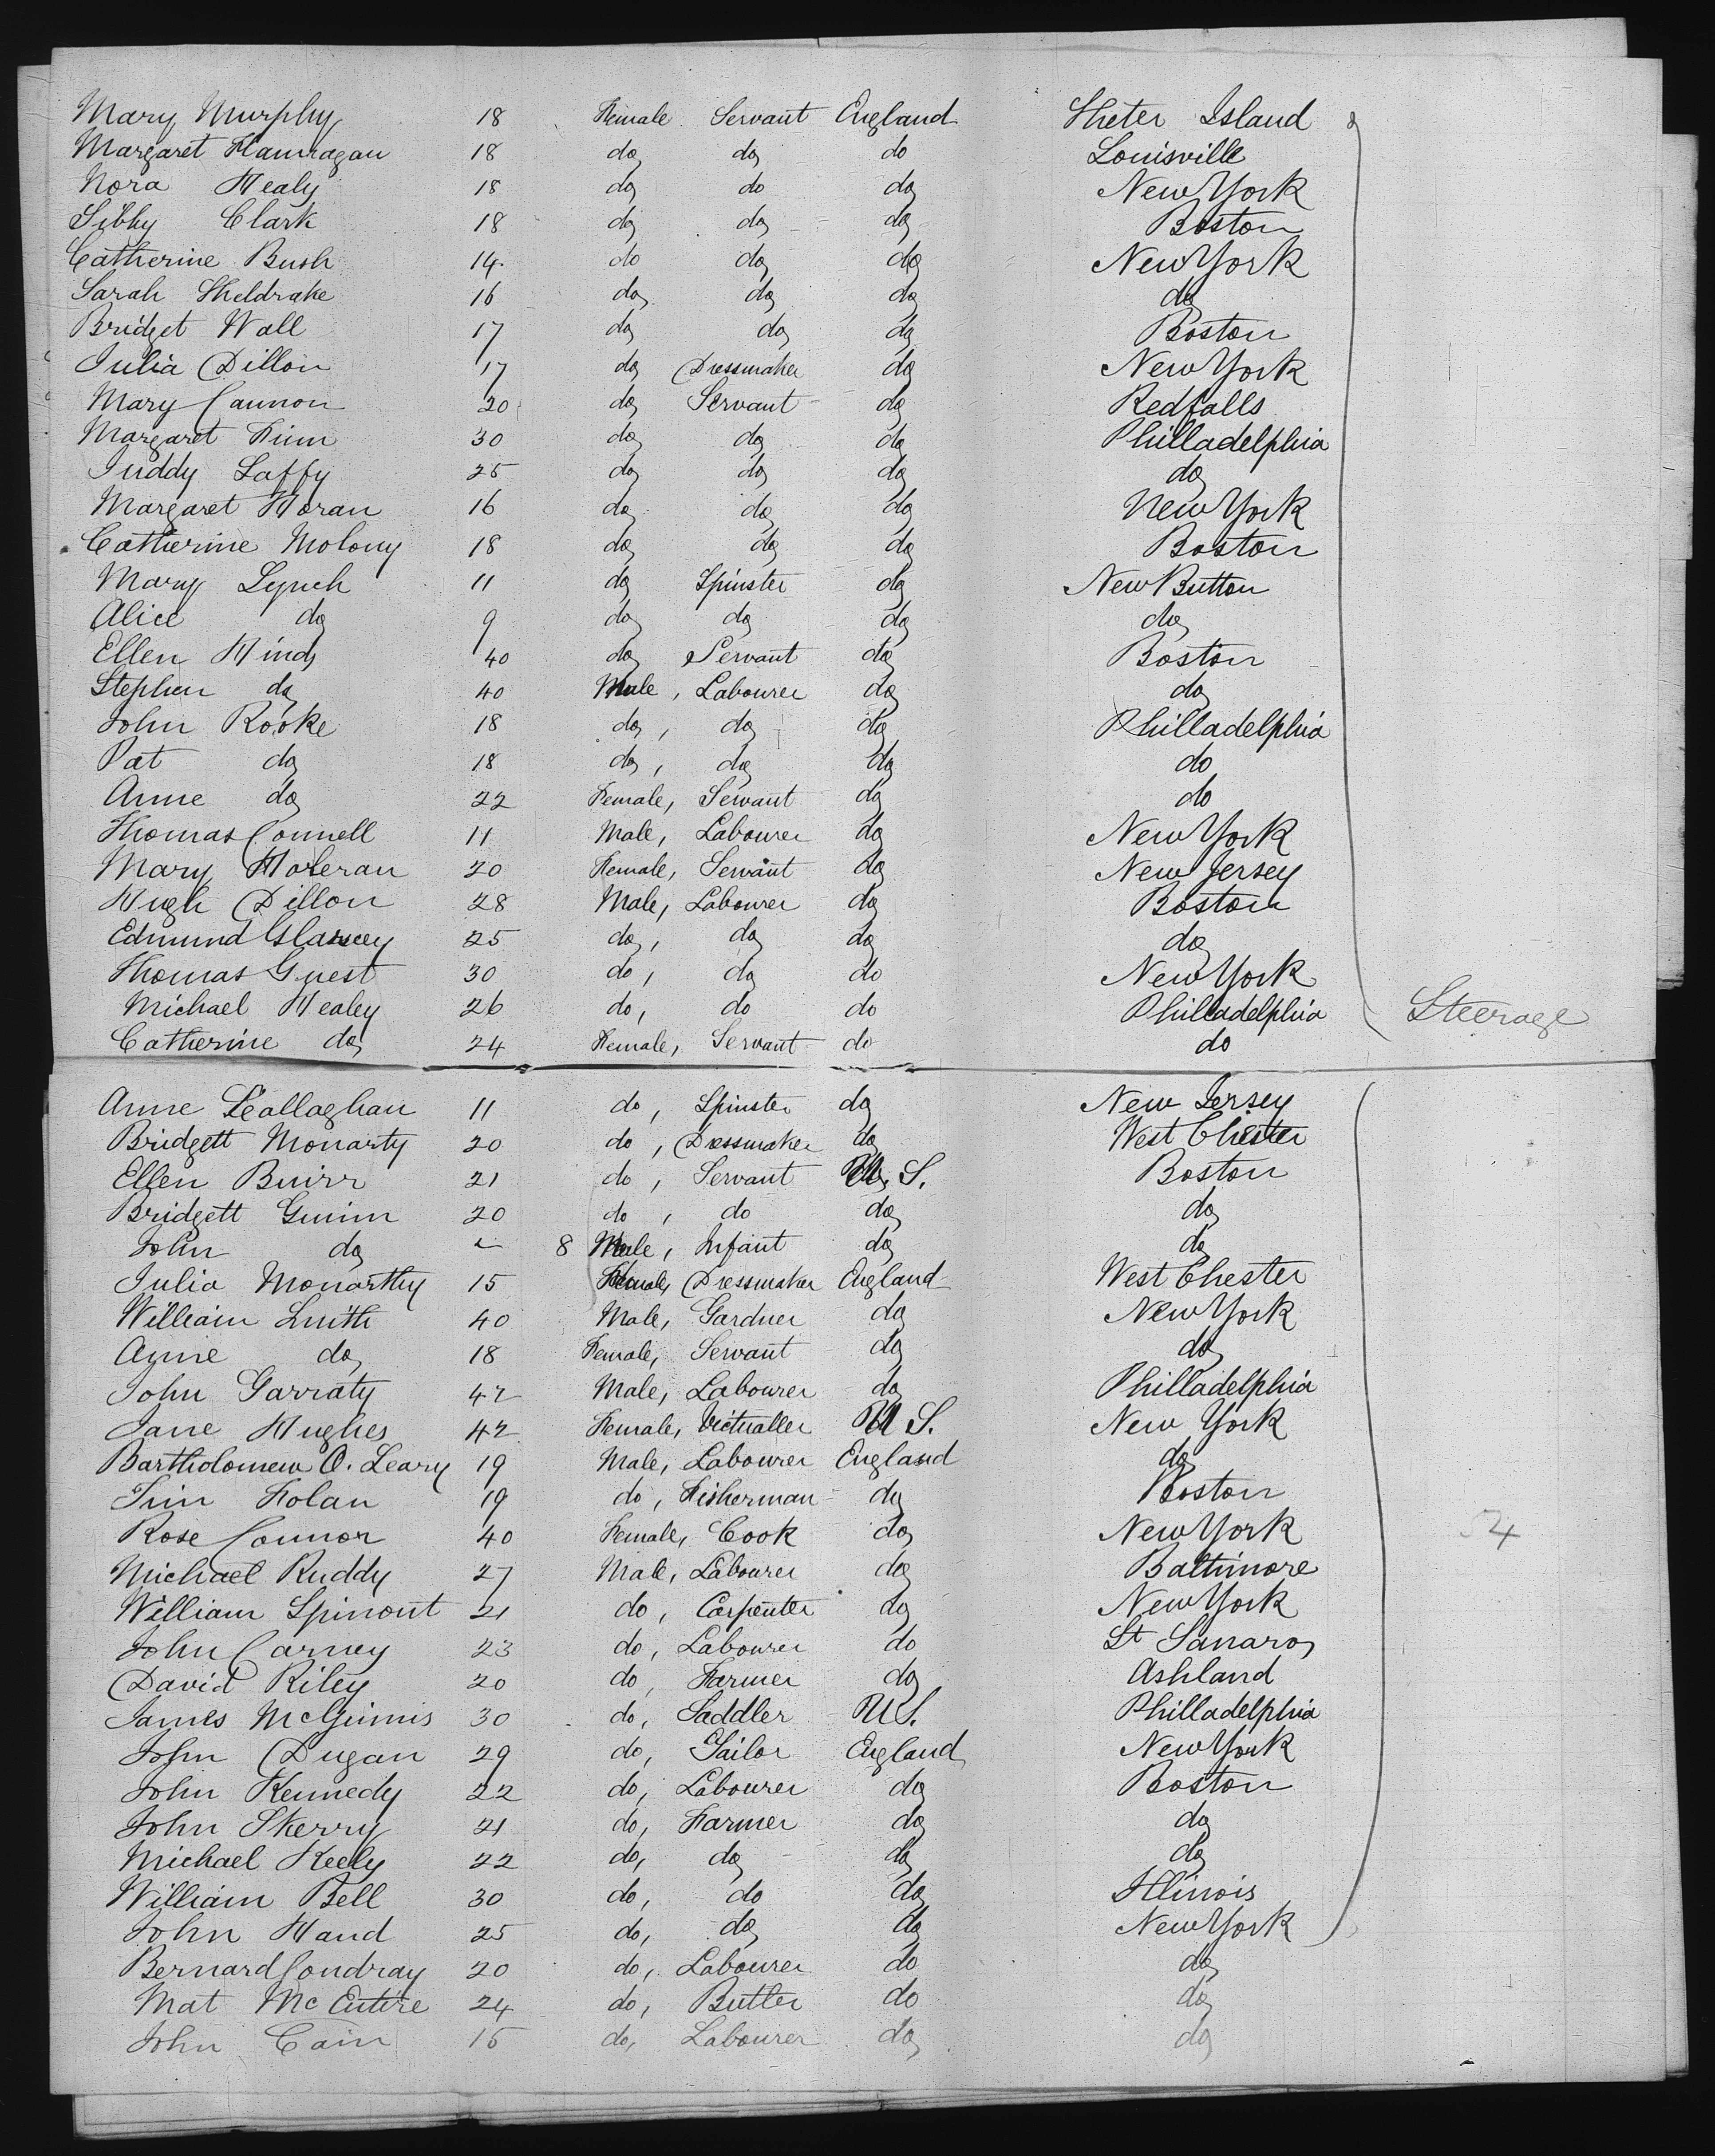 Mary Murphy 18 Female Servant England Sheter Island
Margaret Flannagan 18 do do do Louisville
Nora Healy 18 do do do New York
Sibby Clark 18 do do do Boston
Catherine Bush 14 do do do New York
Sarah Sheldrake 16 do do do do
Bridget Wall 17 do do do Boston
Julia Dillon 17 do Dressmaker do New York
Mary Cannon 20 do Servant do Redfalls
Margaret Finn 30 do do do Philladelphia
Juddy Laffy 25 do do do do
Margaret Horan 16 do do do New York
Catherine Molony 18 do do do Boston
Mary Lynch 11 do Spinster do New Button
Alice do 9 do do do do
Ellen Hind 40 do Servant do Boston
Stephen do 40 Male, Labourer do do
John Rooke 18 do, do do Philladelphia
Pat do 18 do, do do do
Anne do 22 Female, Servant do do
Thomas Connell 11 Male, Labourer do New York
Mary Holeran 20 Female, Servant do New Jersey
Hugh Dillon 28 Male, Labourer do Boston
Edmund 25 do, do do do
Thomas Guest 30 do, do do New York
Michael Healey 26 do, do do Philladelphia Steerage
Catherine do 24 Female, Servant do do
Anne 11 do, Spinster do New Jersey
Bridgett Monarty 20 do, Dressmaker do West Chester
Ellen 21 do, Servant U. S. Boston
Bridgett Guinn 20 do, do do do
John do 8 Male, Infant do do
Julia Monarthy 15 Female, Dressmaker England West Chester
William Smith 40 Male, Gardner do New York
Anne do 18 Female, Servant do do
John Garraty 42 Male, Labourer do Philladelphia
Jane Hughes 42 Female, Victualler U S. New York
Bartholomew O. Leary 19 Male, Labourer England do
Tim Folan 19 do, Fisherman do Boston
Rose Connor 40 Female, Cook do New York 54
Michael Ruddy 27 Male, Labourer do Baltimore
William Spinont 21 do, Carpenter do New York
John Carney 23 do, Labourer do St
David Riley 20 do, Farmer do Ashland
James McGinnis 30 do, Saddler U S. Philladelphia
John Dugan 29 do, Tailor England New York
John Kennedy 22 do, Labourer do Boston
John Skerry 21 do, Farmer do do
Michael Keely 22 do, do do do
William Bell 30 do, do do Illinois
John Hand 25 do, do do New York
Bernard Condray 20 do, Labourer do do
Mat McEntire 24 do, Butler do do
John Cain 15 do, Labourer do do